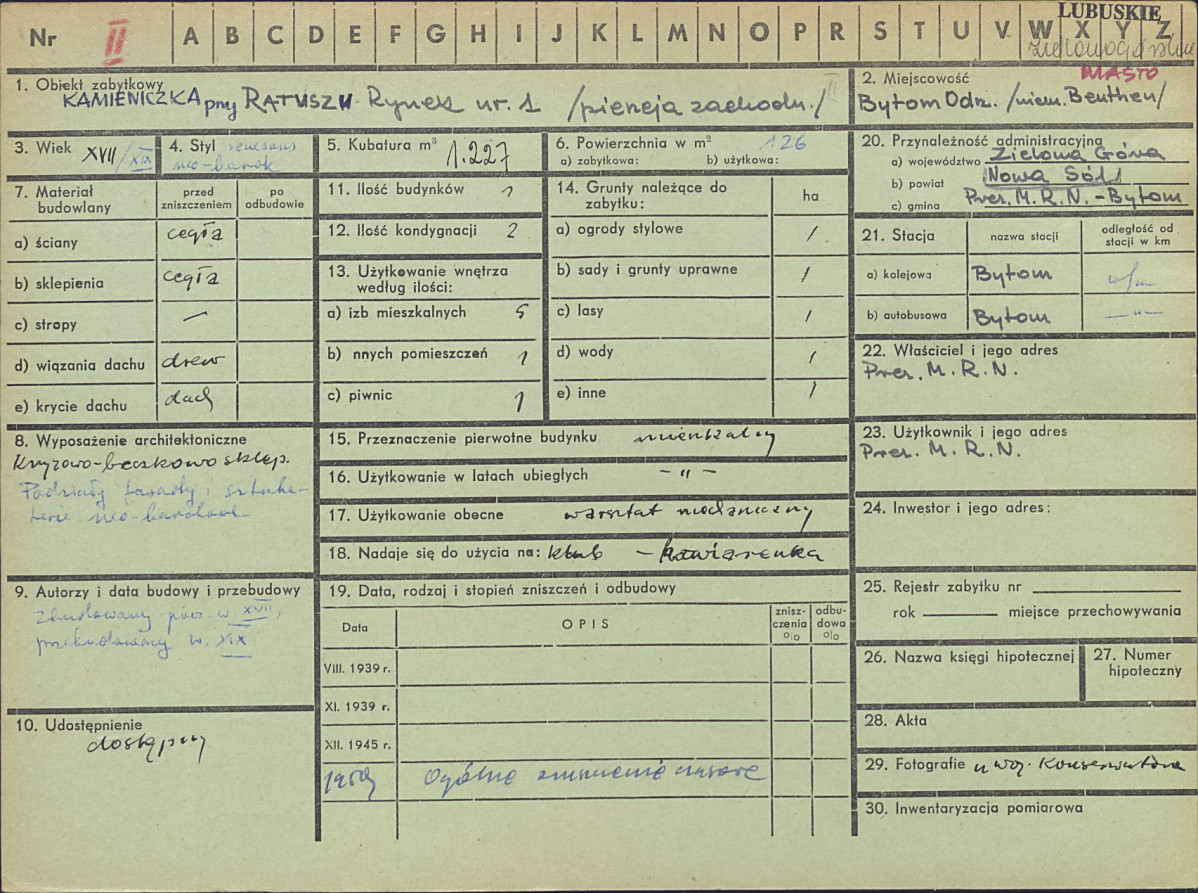 LUBUSKIE
Nr II A B C D E F G H I J K L M N O P R S T U V W X Y Z
1. Obiekt zabytkowy
KAMIENICZKA przy RATUSZU Rynek nr. 1 /pierzeja zachodn./
2. Miejscowość MIASTO
Bytom Odrz. /niem. Beuthen/
3. Wiek XVII/XIX
4. Styl renesans
neo-barok
5. Kubatura m³ 1.227
6. Powierzchnia w m² 126
a) zabytkowa: b) użytkowa:
20. Przynależność administracyjna
a) województwo Zielona Góra
b) powiat Nowa Sól
c) gmina Prez. M. R. N. - Bytom
7. Materiał budowlany
przed zniszczeniem
po odbudowie
a) ściany cegła
b) sklepienia cegła
c) stropy —
d) wiązania dachu drew
e) krycie dachu dach
11. Ilość budynków 1
12. Ilość kondygnacji 2
13. Użytkowanie wnętrza
według ilości:
a) izb mieszkalnych 5
b) nnych pomieszczeń 1
c) piwnic 1
14. Grunty należące do
zabytku: ha
a) ogrody stylowe /
b) sady i grunty uprawne /
c) lasy /
d) wody /
e) inne /
21. Stacja
nazwa stacji
odległość od
stacji w km
a) kolejowa Bytom w/m
b) autobusowa Bytom —"—
22. Właściciel i jego adres
Prez. M. R. N.
23. Użytkownik i jego adres
Prez. M. R. N.
24. Inwestor i jego adres:
8. Wyposażenie architektoniczne
Krzyżowo-beczkowo sklep.
Podziały fasady i sztuka-
terie neo-barokowe
15. Przeznaczenie pierwotne budynku mieszkalny
16. Użytkowanie w latach ubiegłych — " —
17. Użytkowanie obecne warsztat mechaniczny
18. Nadaje się do użycia na: klub - kawiarenka
9. Autorzy i data budowy i przebudowy
Zbudowany w. XVII,
przebudowany w. XIX
10. Udostępnienie
dostępny
19. Data, rodzaj i stopień zniszczeń i odbudowy
Data
OPIS
znisz-
czenia
%
odbu-
dowa
%
VIII. 1939 r.
XI. 1939 r.
XII. 1945 r.
Ogólne zniszczenie
25. Rejestr zabytku nr
rok miejsce przechowywania
26. Nazwa księgi hipotecznej
27. Numer
hipoteczny
28. Akta
29. Fotografie u woj. Konserwatora
30. Inwentaryzacja pomiarowa